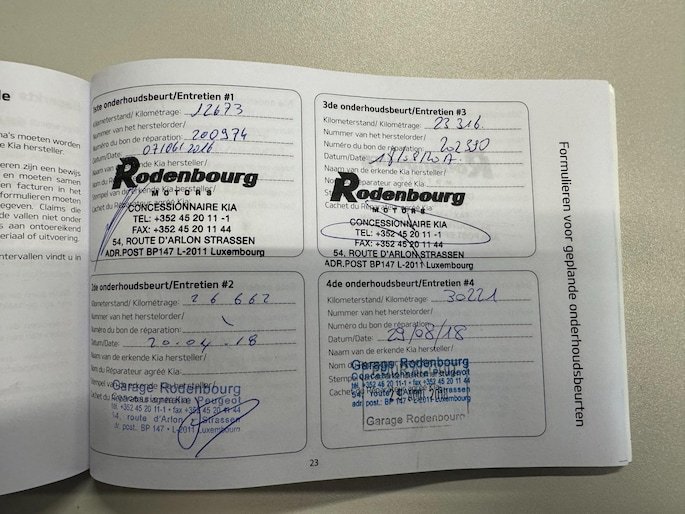 de
na's moeten worden
e Kia hersteller.
eren zijn een bewijs
en moeten samen
facturen in het
formulieren moeten
en. Claims die
de vallen niet onder
as aan ontoereikend
eriaal of uitvoering.
ntervallen vindt u in
1ste onderhoudsbeurt/Entretien #1
Kilometerstand/ Kilométrage: 12673
Nummer van het herstelorder/
Numéro du bon de réparation: 200974
Datum/Date: 07/06/2016
Naam van de erkende Kia hersteller/
Rodenbourg
MOTORS
CONCESSIONNAIRE KIA
TEL: +352 45 20 11 -1
FAX: +352 45 20 11 44
54, ROUTE D'ARLON STRASSEN
ADR.POST BP147 L-2011 Luxembourg
2de onderhoudsbeurt/Entretien #2
Kilometerstand/ Kilométrage: 26 662
Nummer van het herstelorder/
Numéro du bon de réparation:
Datum/Date: 20.04.18
Naam van de erkende Kia hersteller/
Nom du Réparateur agréé Kia:
Stempel van de erkende Kia hersteller/
Garage Rodenbourg
Concessionnaire Peugeot
tél. +352 45 20 11-1 • fax +352 45 20 11 44
54, route d'Arlon Strassen
adr. post.: BP 147 • L-2011 Luxembourg
3de onderhoudsbeurt/Entretien #3
Kilometerstand/ Kilométrage: 23 316
Nummer van het herstelorder/
Numéro du bon de réparation: 202390
Datum/Date:
Naam van de erkende Kia hersteller/
Rodenbourg
MOTORS
CONCESSIONNAIRE KIA
TEL: +352 45 20 11 -1
FAX: +352 45 20 11 44
54, ROUTE D'ARLON STRASSEN
ADR.POST BP147 L-2011 Luxembourg
4de onderhoudsbeurt/Entretien #4
Kilometerstand/ Kilométrage: 30221
Nummer van het herstelorder/
Numéro du bon de réparation:
Datum/Date: 29/08/18
Naam van de erkende Kia hersteller/
Garage Rodenbourg
Concessionnaire Peugeot
tél. +352 45 20 11-1 • fax +352 45 20 11 44
54, route d'Arlon Strassen
adr. post.: BP 147 L-2011 Luxembourg
Garage Rodenbourg
Formulieren voor geplande onderhoudsbeurten
23